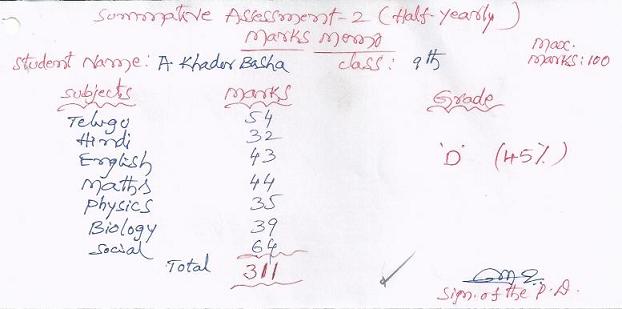 Summative Assessment-2 (Half-yearly)
Marks Memo
Student Name: A Khader Basha class: 9th Max. Marks: 100
Subjects Marks Grade
Telugu 54
Hindi 32
English 43 'D' (45%)
Maths 44
Physics 35
Biology 39
Social 64
Total 311
Sign. of the P.D.